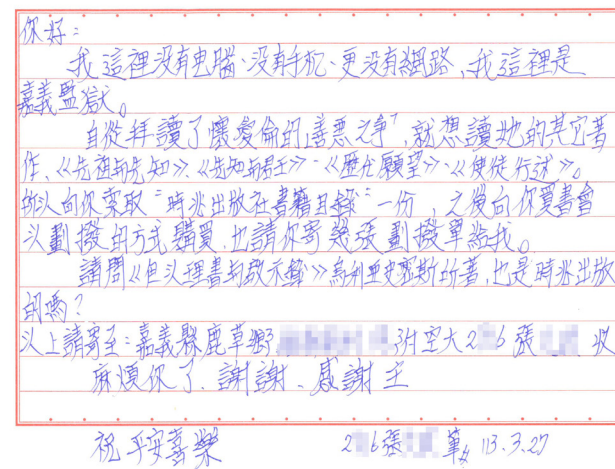 你好：
我這裡没有电腦、没有手机、更没有網路、我這裡是
嘉義監獄。
自從拜讀了懷愛倫的"善恶之争"，就想讀她的其它著
作、《先祖与先知》、《先知与君王》、《歷代願望》、《使徒行述》。
所以向你索取"時兆出版社書籍目錄"一份，之後向你買書會
以劃撥的方式購買，也請你寄幾張劃撥單給我。
請問《但以理書与啟示錄》烏利亚史密斯所著，也是時兆出版
的嗎？
以上請寄至：嘉義縣鹿草鄉 附空大2 6 張 收
麻煩你了、謝謝、感謝主
祝 平安喜樂 2 6張 筆 113.3.27